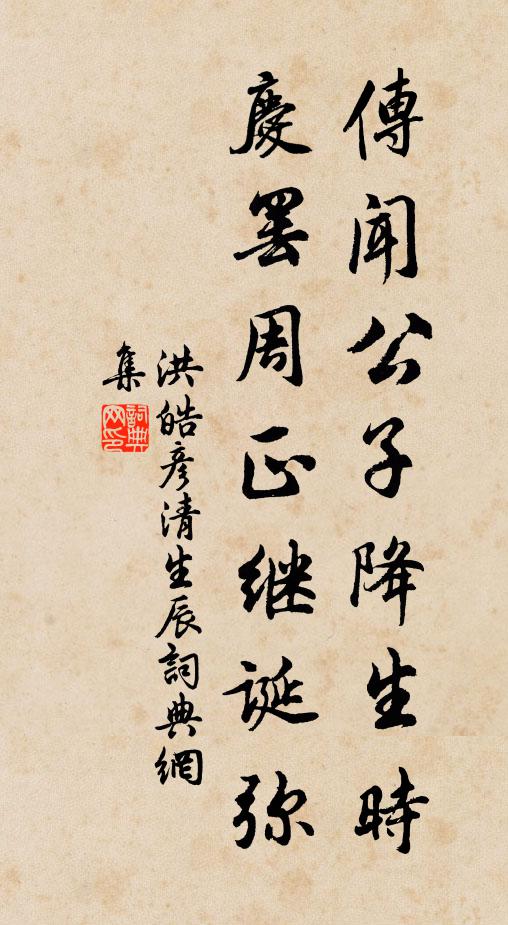 傳聞公子降生時
慶罷周正継誕弥
洪皓彦清生辰詞典網
集
詞典
网印